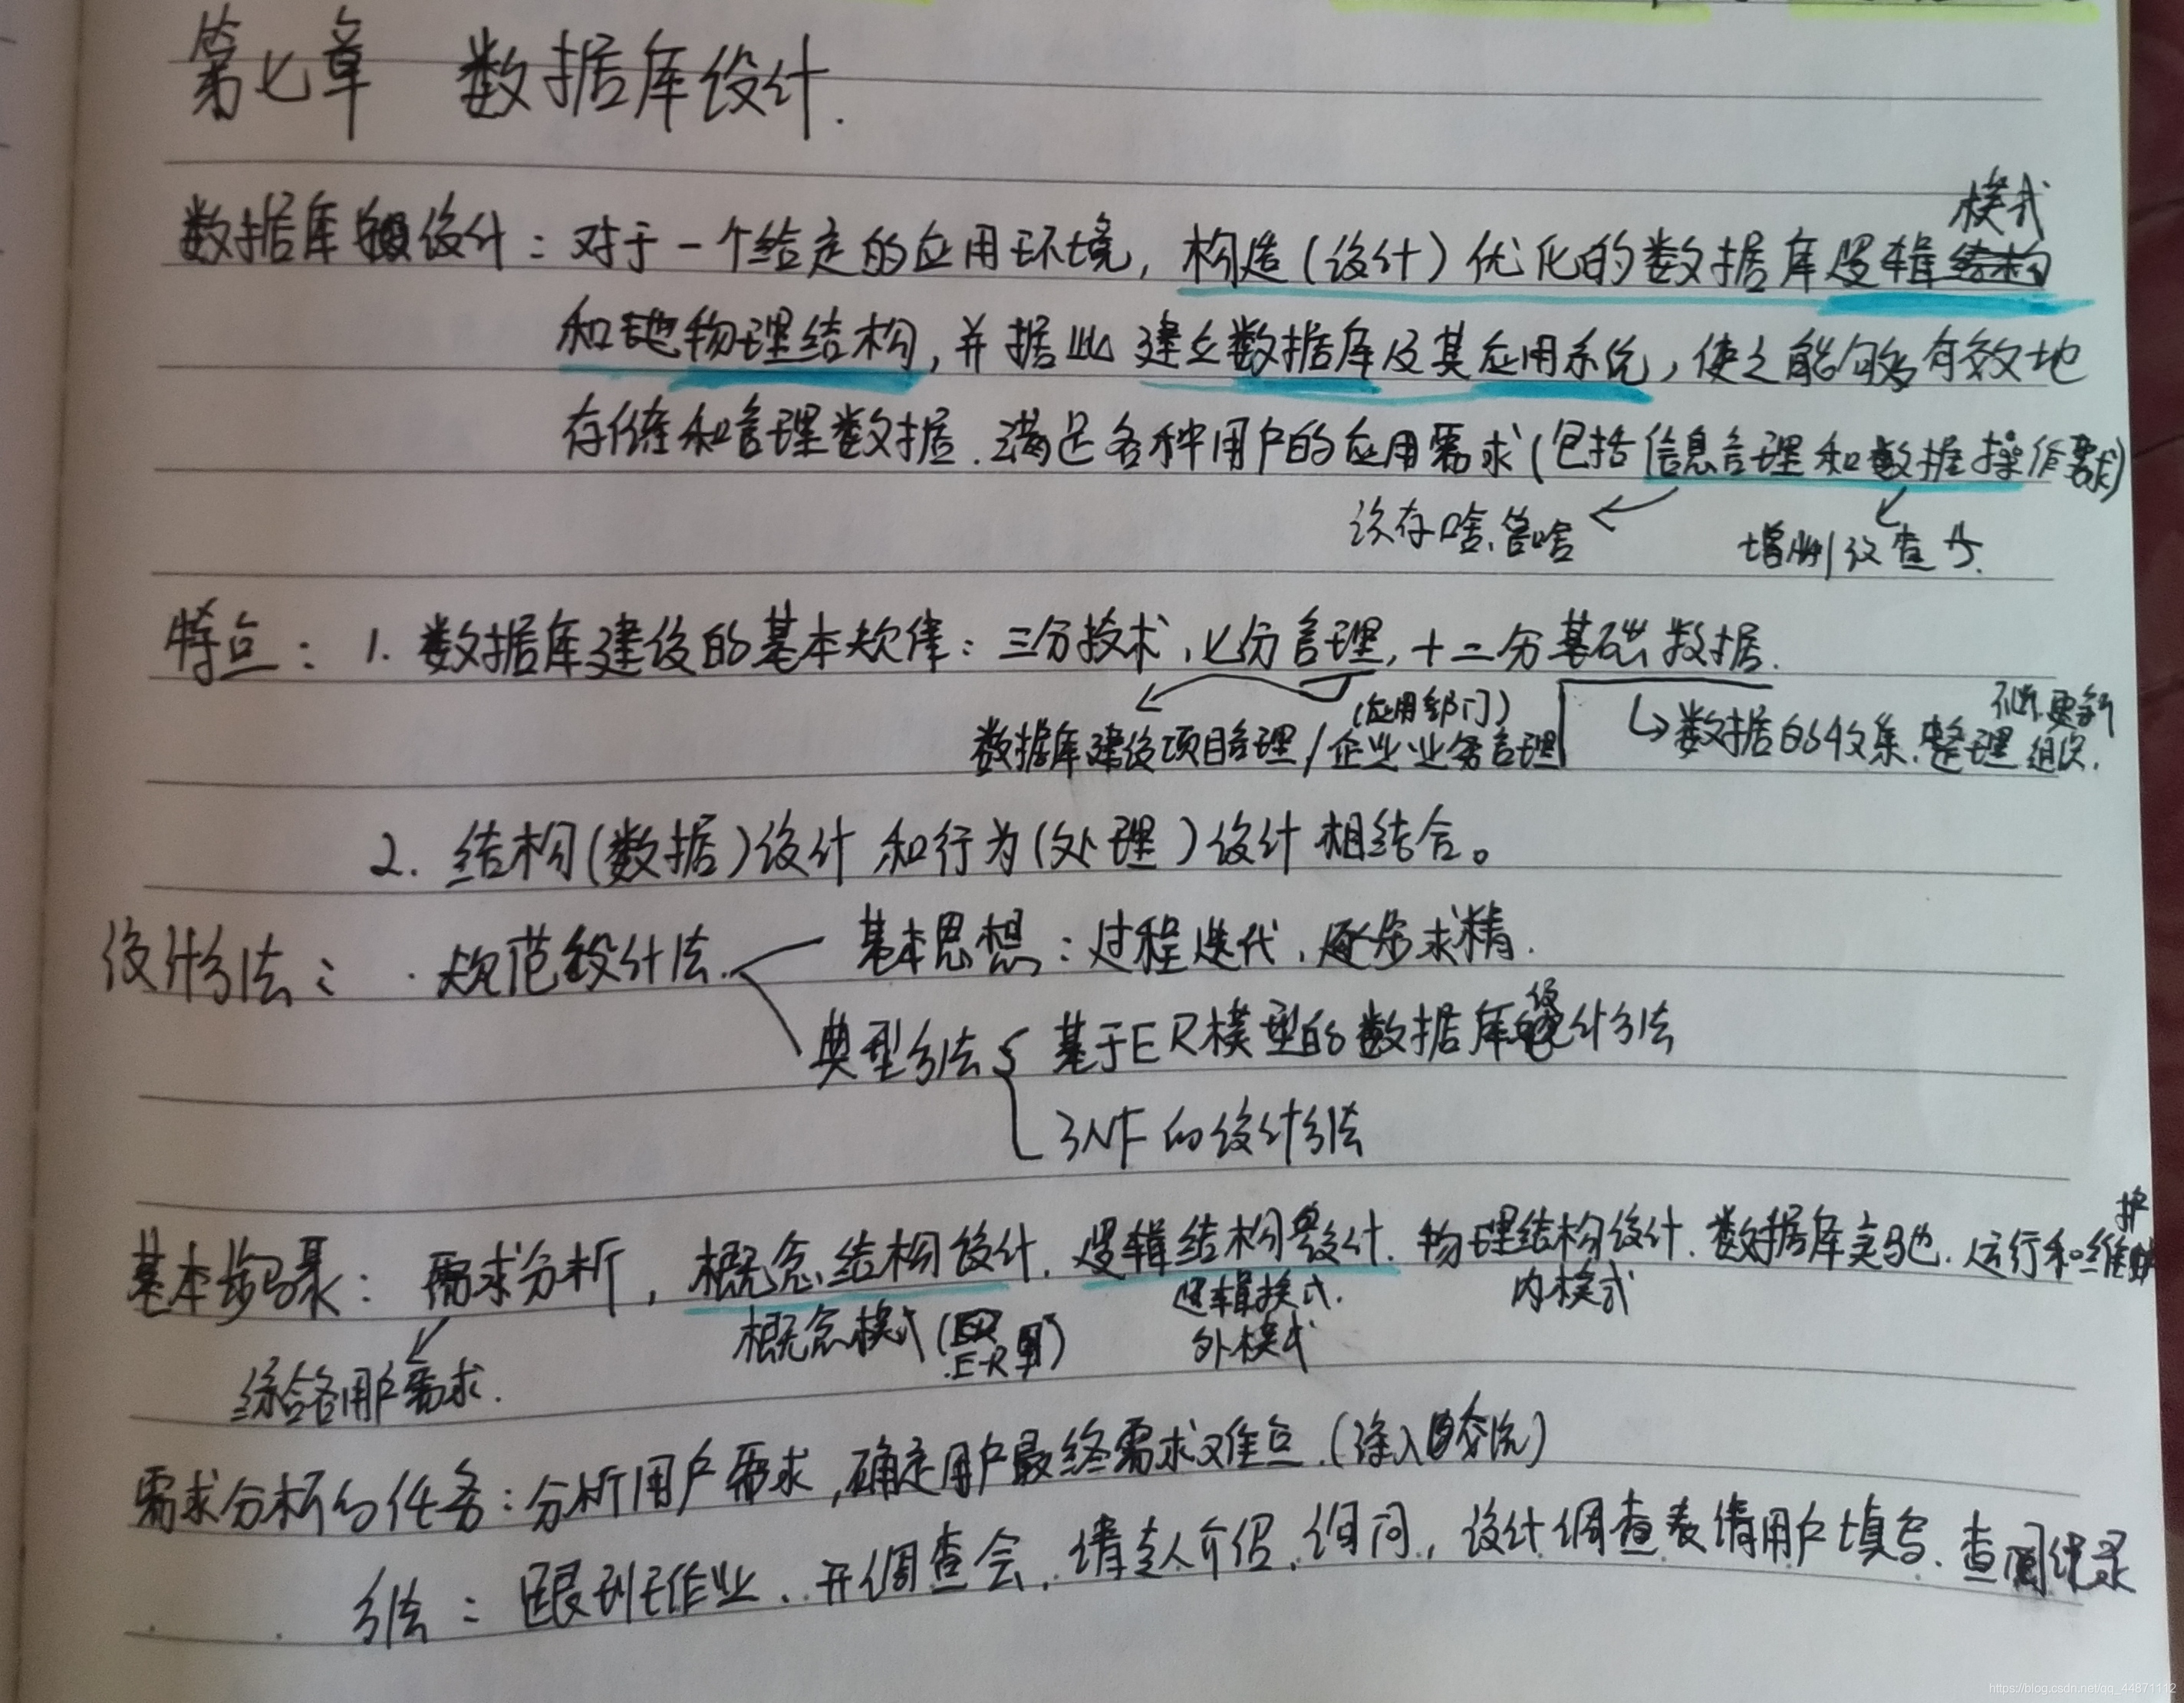 第七章 数据库设计.
模式
数据库设计：对于一个给定的应用环境，构造（设计）优化的数据库逻辑结构
和物理结构，并据此建立数据库及其应用系统，使之能够有效地
存储和管理数据.满足各种用户的应用需求（包括信息管理和数据操作需求）
该存啥、管啥 增删改查等.
特点：1. 数据库建设的基本规律：三分技术，七分管理，十二分基础数据.
（应用部门） 不断更新
数据库建设项目管理/企业业务管理 数据的收集、整理 组织.
2. 结构（数据）设计 和行为（处理）设计相结合。
设计方法： 规范设计法. 基本思想：过程迭代，逐步求精.
典型方法 基于ER模型的数据库设计方法
3NF的设计方法
护
基本步骤：需求分析，概念结构设计.逻辑结构设计.物理结构设计.数据库实施.运行和维
逻辑模式. 内模式
概念模式（E-R图） 外模式
综合各用户需求.
需求分析的任务：分析用户需求，确定用户最终需求难点.（深入交流）
方法：跟班作业、开调查会、请专人介绍、询问，设计调查表请用户填写、查阅记录
https://blog.csdn.net/qq_44871112